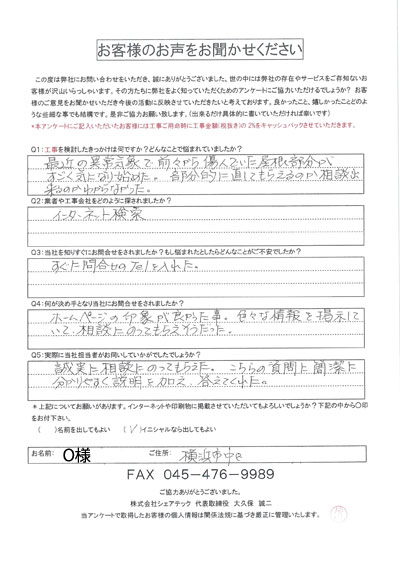 お客様のお声をお聞かせください
この度は弊社にお問い合わせをいただき、誠にありがとうございました。世の中には弊社の存在やサービスをご存知ないお
客様が沢山いらっしゃいます。その方たちに弊社をよく知っていただくためのアンケートにご協力いただけるでしょうか? お
客様のご意見をお聞かせいただき今後の活動に反映させていただきたいと考えております。良かったこと、嬉しかったことどの
ような些細な事でも結構です。是非ご協力お願い致します。(出来るだけ具体的に書いていただければ幸いです)
*本アンケートにご記入いただいたお客様には工事ご用命時に工事金額(税抜き)の2%をキャッシュバックさせていただきます。
Q1:工事を検討したきっかけは何ですか?どんなことで悩まれていましたか?
最近の異常気象で前々から傷んでいた屋根部分が
すごく気になり始めた。部分的に直してもらえるのか相談出
来るのかわからなかった。
Q2:業者や工事会社をどのように探されましたか?
インターネット検索
Q3:当社を知りすぐにお問合せをされましたか?もし悩まれたとしたらどんなことがご不安でしたか?
すぐに問合せのTelを入れた。
Q4:何が決め手となり当社にお問合せをされましたか?
ホームページの印象が良かった事。色々な情報を掲示して
いて、相談にのってもらえそうだった。
Q5:実際に当社担当者がお伺いしていかがでしたでしょうか?
誠実に相談にのってもらえた。こちらの質問に簡潔に
分かりやすく説明を加え、答えてくれた。
*上記についてお願いがあります。インターネットや印刷物に掲載させていただいてもよろしいでしょうか?下記の中から〇印
をお付下さい。
( )名前を出してもよい (✓)イニシャルなら出してもよい
お名前: O様 ご住所: 横浜市中区
FAX 045-476-9989
ご協力ありがとうございました。
株式会社シェアテック 代表取締役 大久保 誠二
当アンケートで取得したお客様の個人情報は関係法規に基づき厳正に管理いたします。